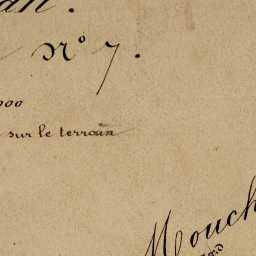 Nº 7.
000
sur le terrain
Mouch